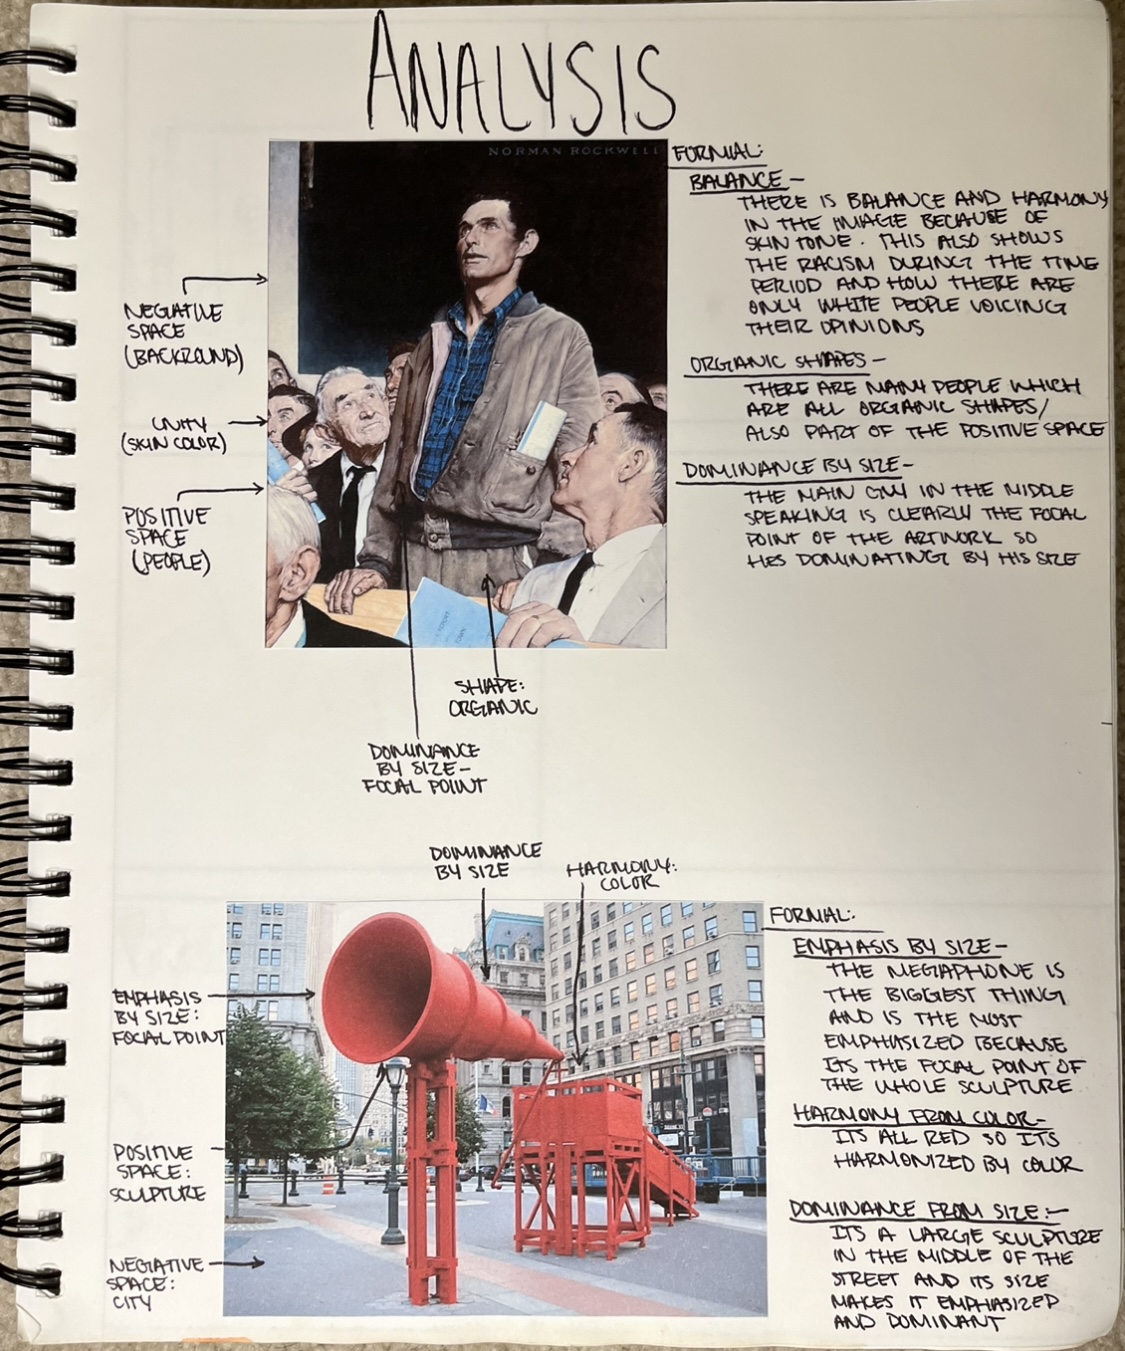 ANALYSIS
NORMAN ROCKWELL
NEGATIVE
SPACE
(BACKROUND)
UNITY
(SKIN COLOR)
POSITIVE
SPACE
(PEOPLE)
SHAPE:
ORGANIC
DOMINANCE
BY SIZE-
FOCAL POINT
FORMAL:
BALANCE-
THERE IS BALANCE AND HARMONY
IN THE IMAGE BECAUSE OF
SKIN TONE. THIS ALSO SHOWS
THE RACISM DURING THE TIME
PERIOD AND HOW THERE ARE
ONLY WHITE PEOPLE VOICING
THEIR OPINIONS
ORGANIC SHAPES-
THERE ARE MANY PEOPLE WHICH
ARE ALL ORGANIC SHAPES/
ALSO PART OF THE POSITIVE SPACE
DOMINANCE BY SIZE-
THE MAIN GUY IN THE MIDDLE
SPEAKING IS CLEARLY THE FOCAL
POINT OF THE ARTWORK SO
HES DOMINATING BY HIS SIZE
DOMINANCE
BY SIZE
HARMONY:
COLOR
EMPHASIS
BY SIZE:
FOCAL POINT
POSITIVE
SPACE:
SCULPTURE
NEGATIVE
SPACE:
CITY
FORMAL:
EMPHASIS BY SIZE-
THE MEGAPHONE IS
THE BIGGEST THING
AND IS THE MOST
EMPHASIZED BECAUSE
ITS THE FOCAL POINT OF
THE WHOLE SCULPTURE
HARMONY FROM COLOR-
ITS ALL RED SO ITS
HARMONIZED BY COLOR
DOMINANCE FROM SIZE:-
ITS A LARGE SCULPTURE
IN THE MIDDLE OF THE
STREET AND ITS SIZE
MAKES IT EMPHASIZED
AND DOMINANT